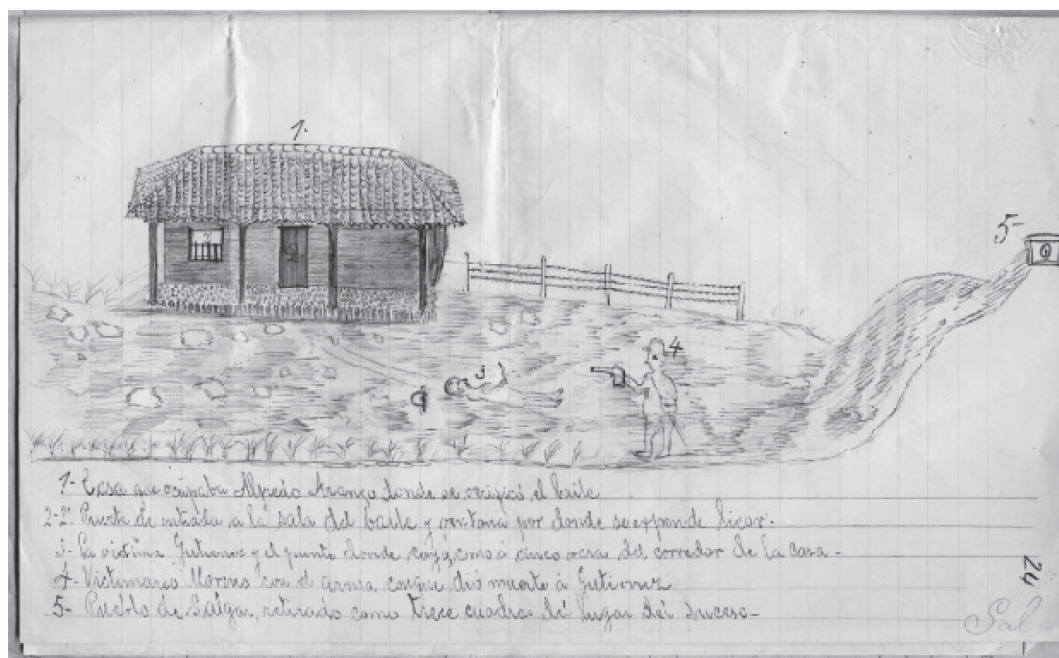 1-
2
2
5-
4
3
1- Casa que ocupaba Alfredo Arango donde se verificó el baile
2-2- Puerta de entrada a la sala del baile y ventana por donde se expende licor.
3- La víctima Gutierrez y el punto donde cayó, como á cinco del corredor de la casa-
4- Victimario Moreno con el arma conque dió muerte á Gutierrez
5- Pueblo de Salgar, retirado como trece cuadras del lugar del suceso-
24
Sal